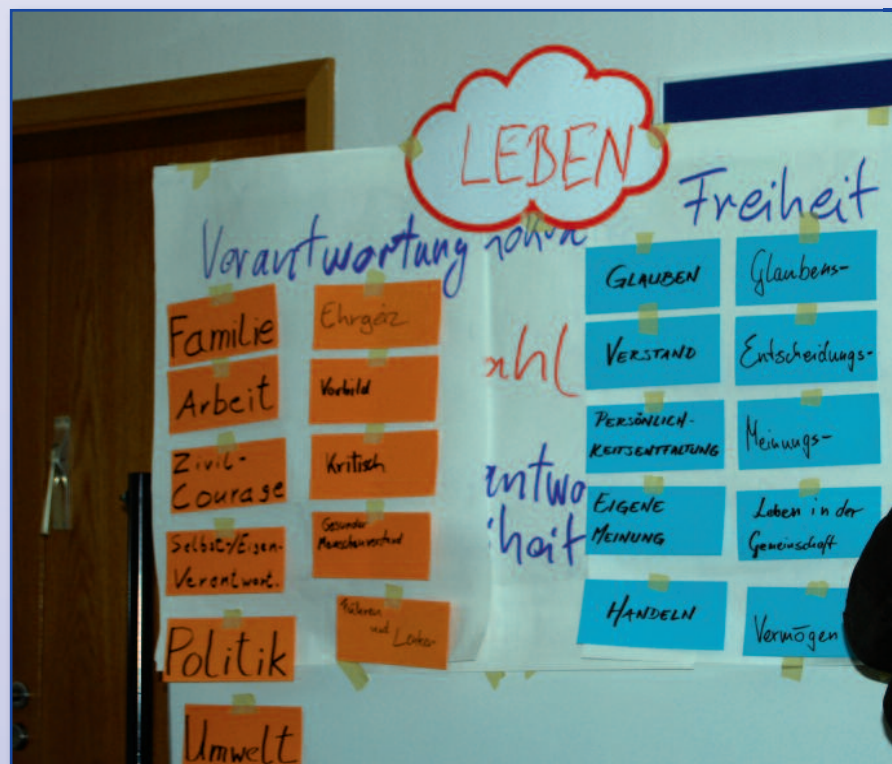 LEBEN
Verantwortung
Familie
Arbeit
Zivil-
Courage
Selbst-/Eigen-
Verantwort.
Politik
Umwelt
Ehrgeiz
Vorbild
Kritisch
Gesunder
Menschenverstand
Führen
und
Leiten
Freiheit
GLAUBEN
VERSTAND
PERSÖNLICH-
KEITSENTFALTUNG
EIGENE
MEINUNG
HANDELN
Glaubens-
Entscheidungs-
Meinungs-
Leben in der
Gemeinschaft
Vermögen
ahl
antwo
iheit